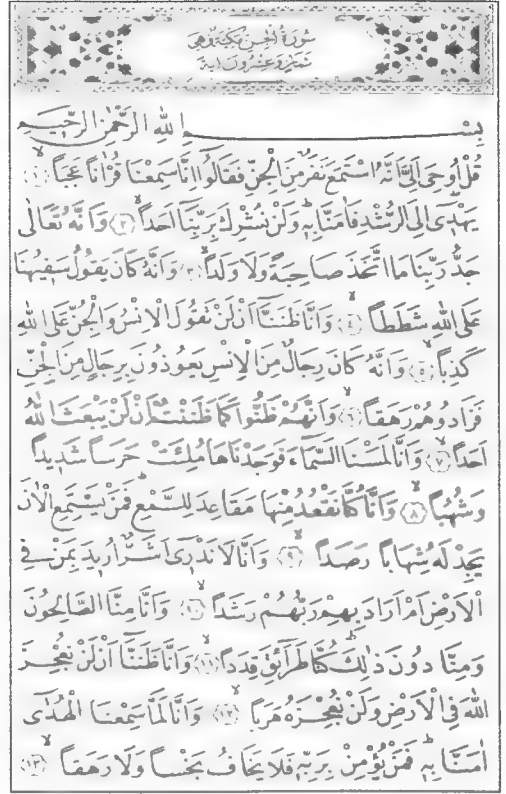 سُورَةُ الْجِنِّ مَكِّيَّةٌ وَهِيَ
ثَمَانٍ وَعِشْرُونَ اٰيَةً
بِسْمِ اللّٰهِ الرَّحْمٰنِ الرَّحِيمِ
قُلْ اُوحِيَ اِلَيَّ اَنَّهُ اسْتَمَعَ نَفَرٌ مِنَ الْجِنِّ فَقَالُٓوا اِنَّا سَمِعْنَا قُرْاٰنًا عَجَبًاۙ ﴿١﴾
يَهْدٖٓي اِلَى الرُّشْدِ فَاٰمَنَّا بِهٖۜ وَلَنْ نُشْرِكَ بِرَبِّنَٓا اَحَدًاۙ ﴿٢﴾ وَاَنَّهُ تَعَالٰى
جَدُّ رَبِّنَا مَا اتَّخَذَ صَاحِبَةً وَلَا وَلَدًاۙ ﴿٣﴾ وَاَنَّهُ كَانَ يَقُولُ سَفٖيهُنَا
عَلَى اللّٰهِ شَطَطًاۙ ﴿٤﴾ وَاَنَّا ظَنَنَّٓا اَنْ لَنْ تَقُولَ الْاِنْسُ وَالْجِنُّ عَلَى اللّٰهِ
كَذِبًاۙ ﴿٥﴾ وَاَنَّهُ كَانَ رِجَالٌ مِنَ الْاِنْسِ يَعُوذُونَ بِرِجَالٍ مِنَ الْجِنِّ
فَزَادُوهُمْ رَهَقًاۙ ﴿٦﴾ وَاَنَّهُمْ ظَنُّوا كَمَا ظَنَنْتُمْ اَنْ لَنْ يَبْعَثَ اللّٰهُ
اَحَدًاۙ ﴿٧﴾ وَاَنَّا لَمَسْنَا السَّمَٓاءَ فَوَجَدْنَاهَا مُلِئَتْ حَرَسًا شَدٖيدًا
وَشُهُبًاۙ ﴿٨﴾ وَاَنَّا كُنَّا نَقْعُدُ مِنْهَا مَقَاعِدَ لِلسَّمْعِۜ فَمَنْ يَسْتَمِعِ الْاٰنَ
يَجِدْ لَهُ شِهَابًا رَصَدًاۙ ﴿٩﴾ وَاَنَّا لَا نَدْرٖٓي اَشَرٌّ اُرٖيدَ بِمَنْ فِي
الْاَرْضِ اَمْ اَرَادَ بِهِمْ رَبُّهُمْ رَشَدًاۙ ﴿١٠﴾ وَاَنَّا مِنَّا الصَّالِحُونَ
وَمِنَّا دُونَ ذٰلِكَۜ كُنَّا طَرَٓائِقَ قِدَدًاۙ ﴿١١﴾ وَاَنَّا ظَنَنَّٓا اَنْ لَنْ نُعْجِزَ
اللّٰهَ فِي الْاَرْضِ وَلَنْ نُعْجِزَهُ هَرَبًاۙ ﴿١٢﴾ وَاَنَّا لَمَّا سَمِعْنَا الْهُدٰٓى
اٰمَنَّا بِهٖۜ فَمَنْ يُؤْمِنْ بِرَبِّهٖ فَلَا يَخَافُ بَخْسًا وَلَا رَهَقًاۙ ﴿١٣﴾